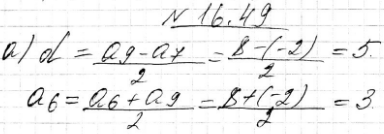 № 16.49
a) d = \frac{a_9 - a_7}{2} = \frac{8-(-2)}{2} = 5.
a_6 = \frac{a_6 + a_9}{2} = \frac{8+(-2)}{2} = 3